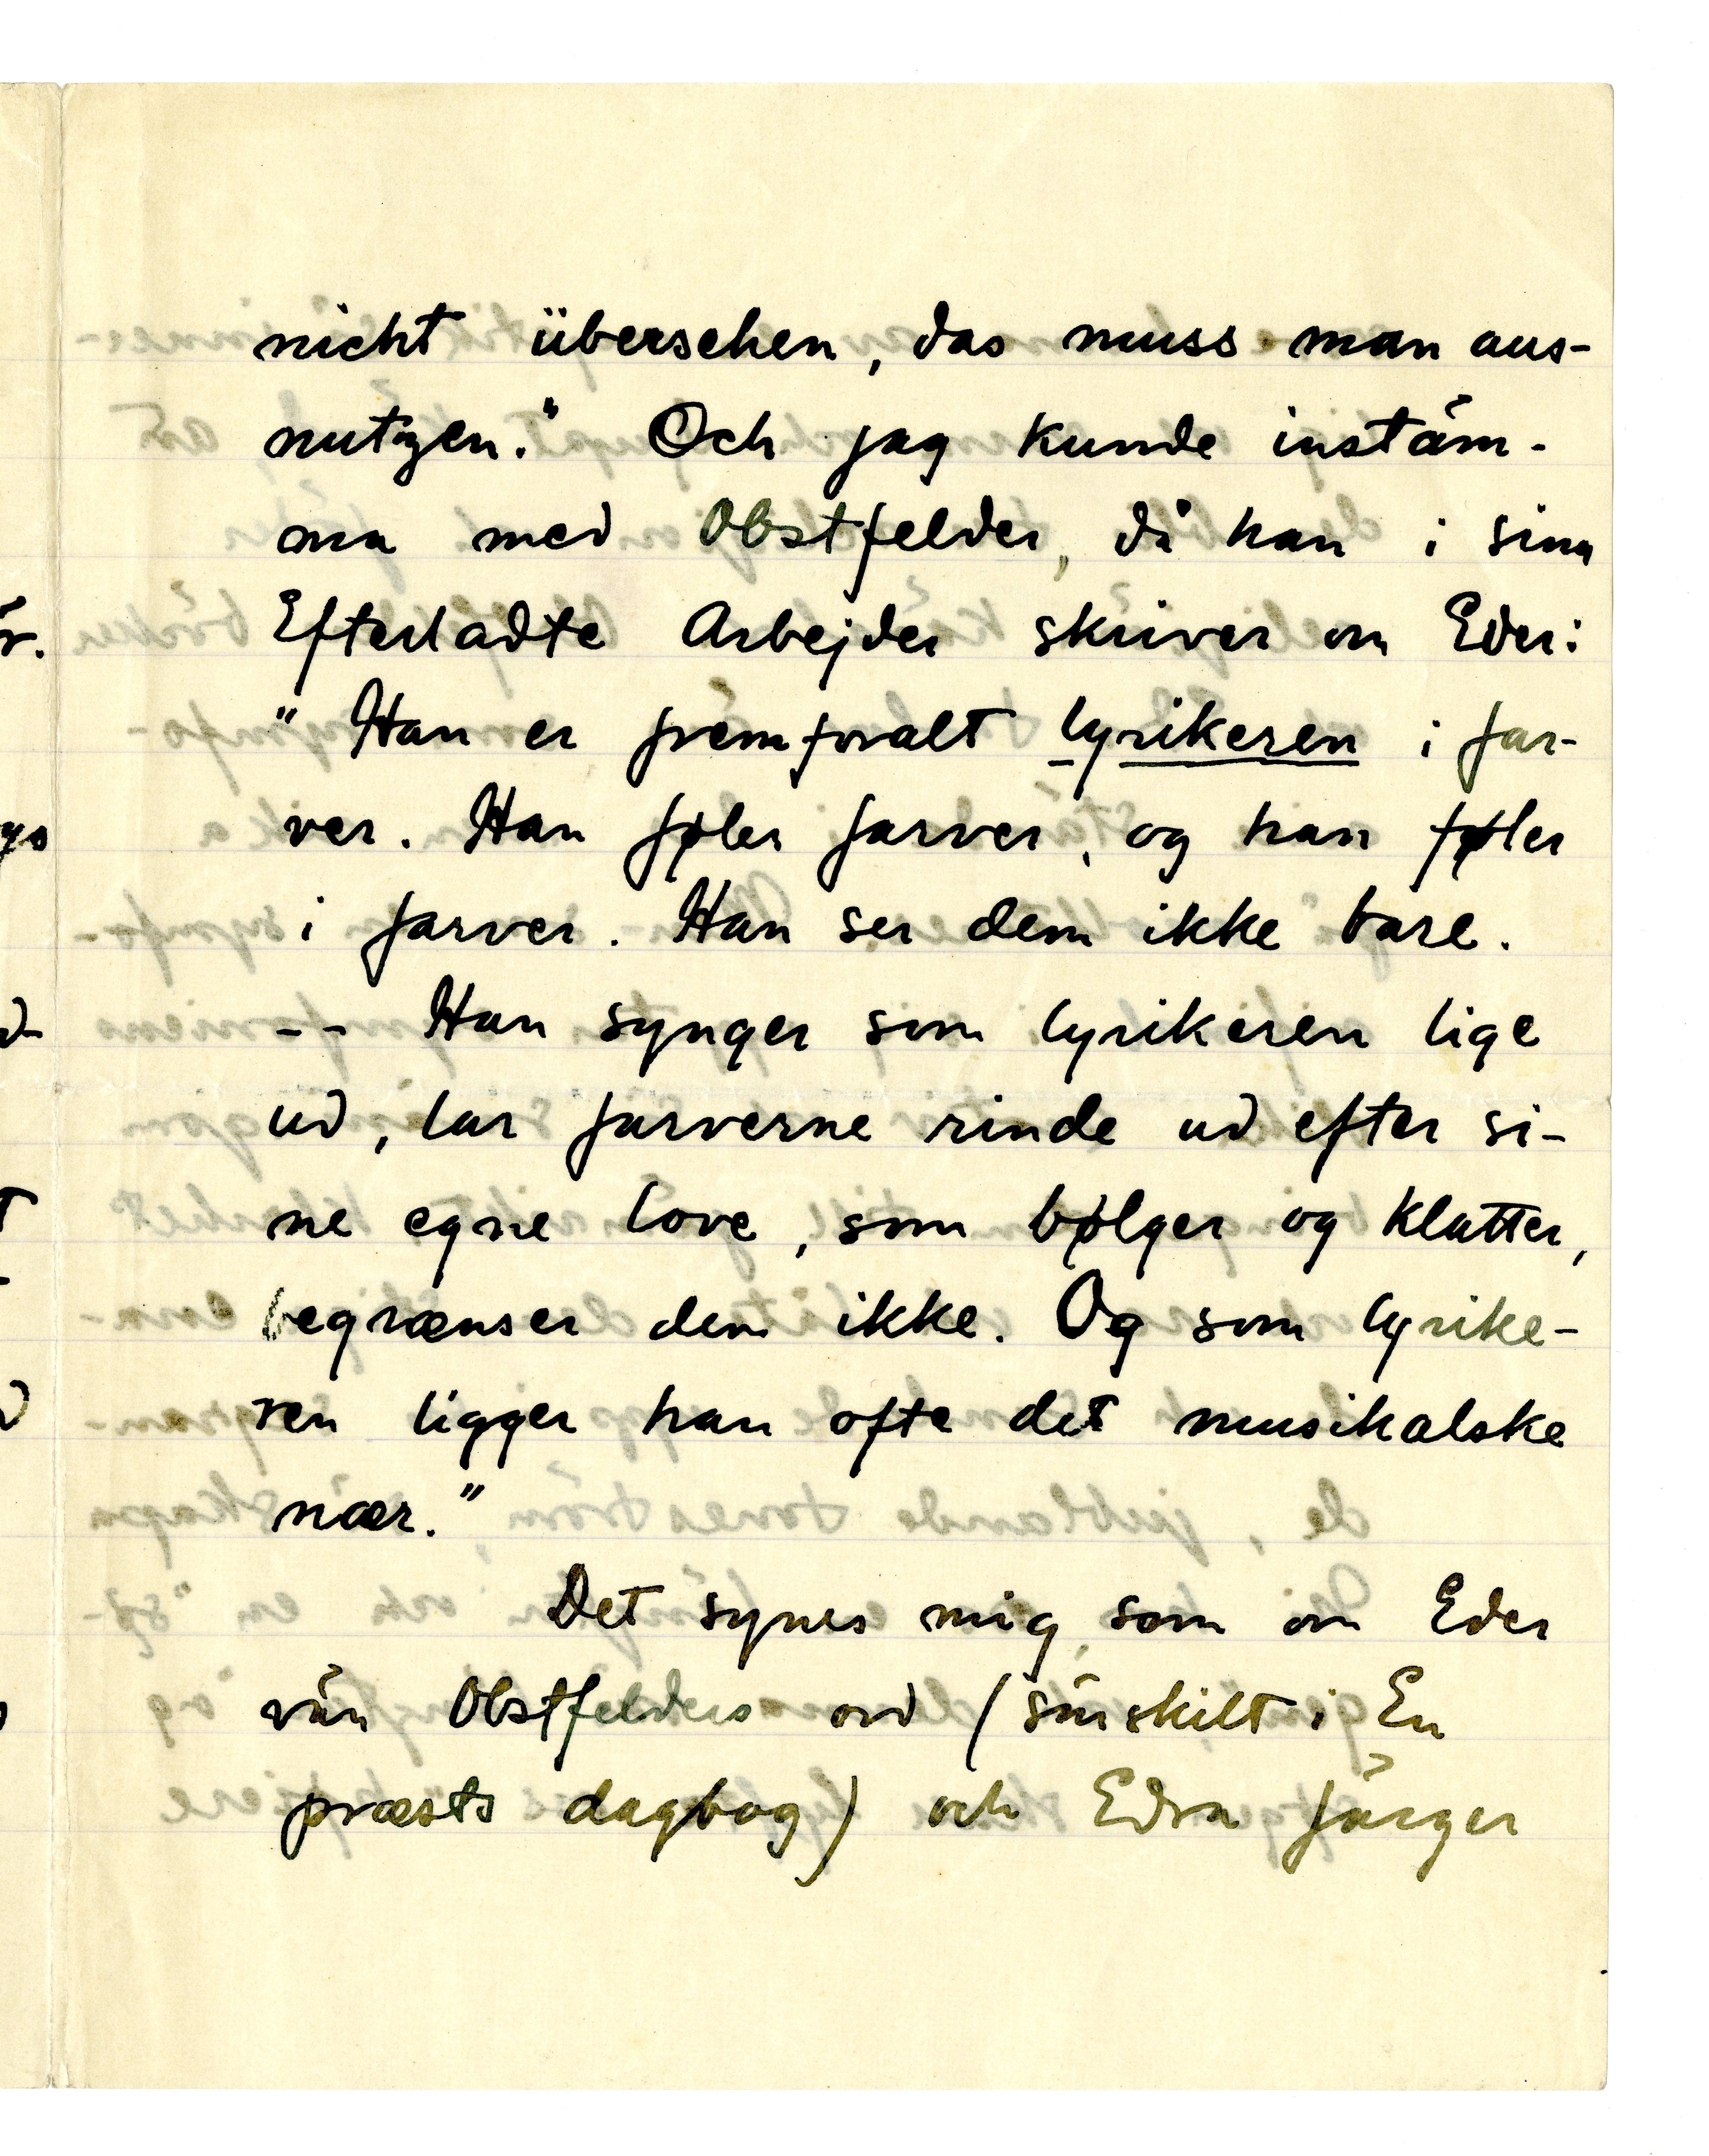 nicht übersehen, das muss man aus-
nutzen." Och jag kunde instäm-
ma med Obstfelder, då han i sina
Efterladte Arbejder skriver om Eder:
" Han er fremforalt lyrikeren i far-
ver. Han føler farver, og han føler
i farver. Han ser dem ikke bare.
-- Han synger som lyrikeren lige
ud, lar farverne rinde ud efter si-
ne egne love, som bølger og klatter,
begrænser dem ikke. Og som lyrike-
ren ligger han ofte det musikalske
nær."
Det synes mig som om Eder
vän Obstfelders ord (särskilt i En
præsts dagbog) och Edra färger